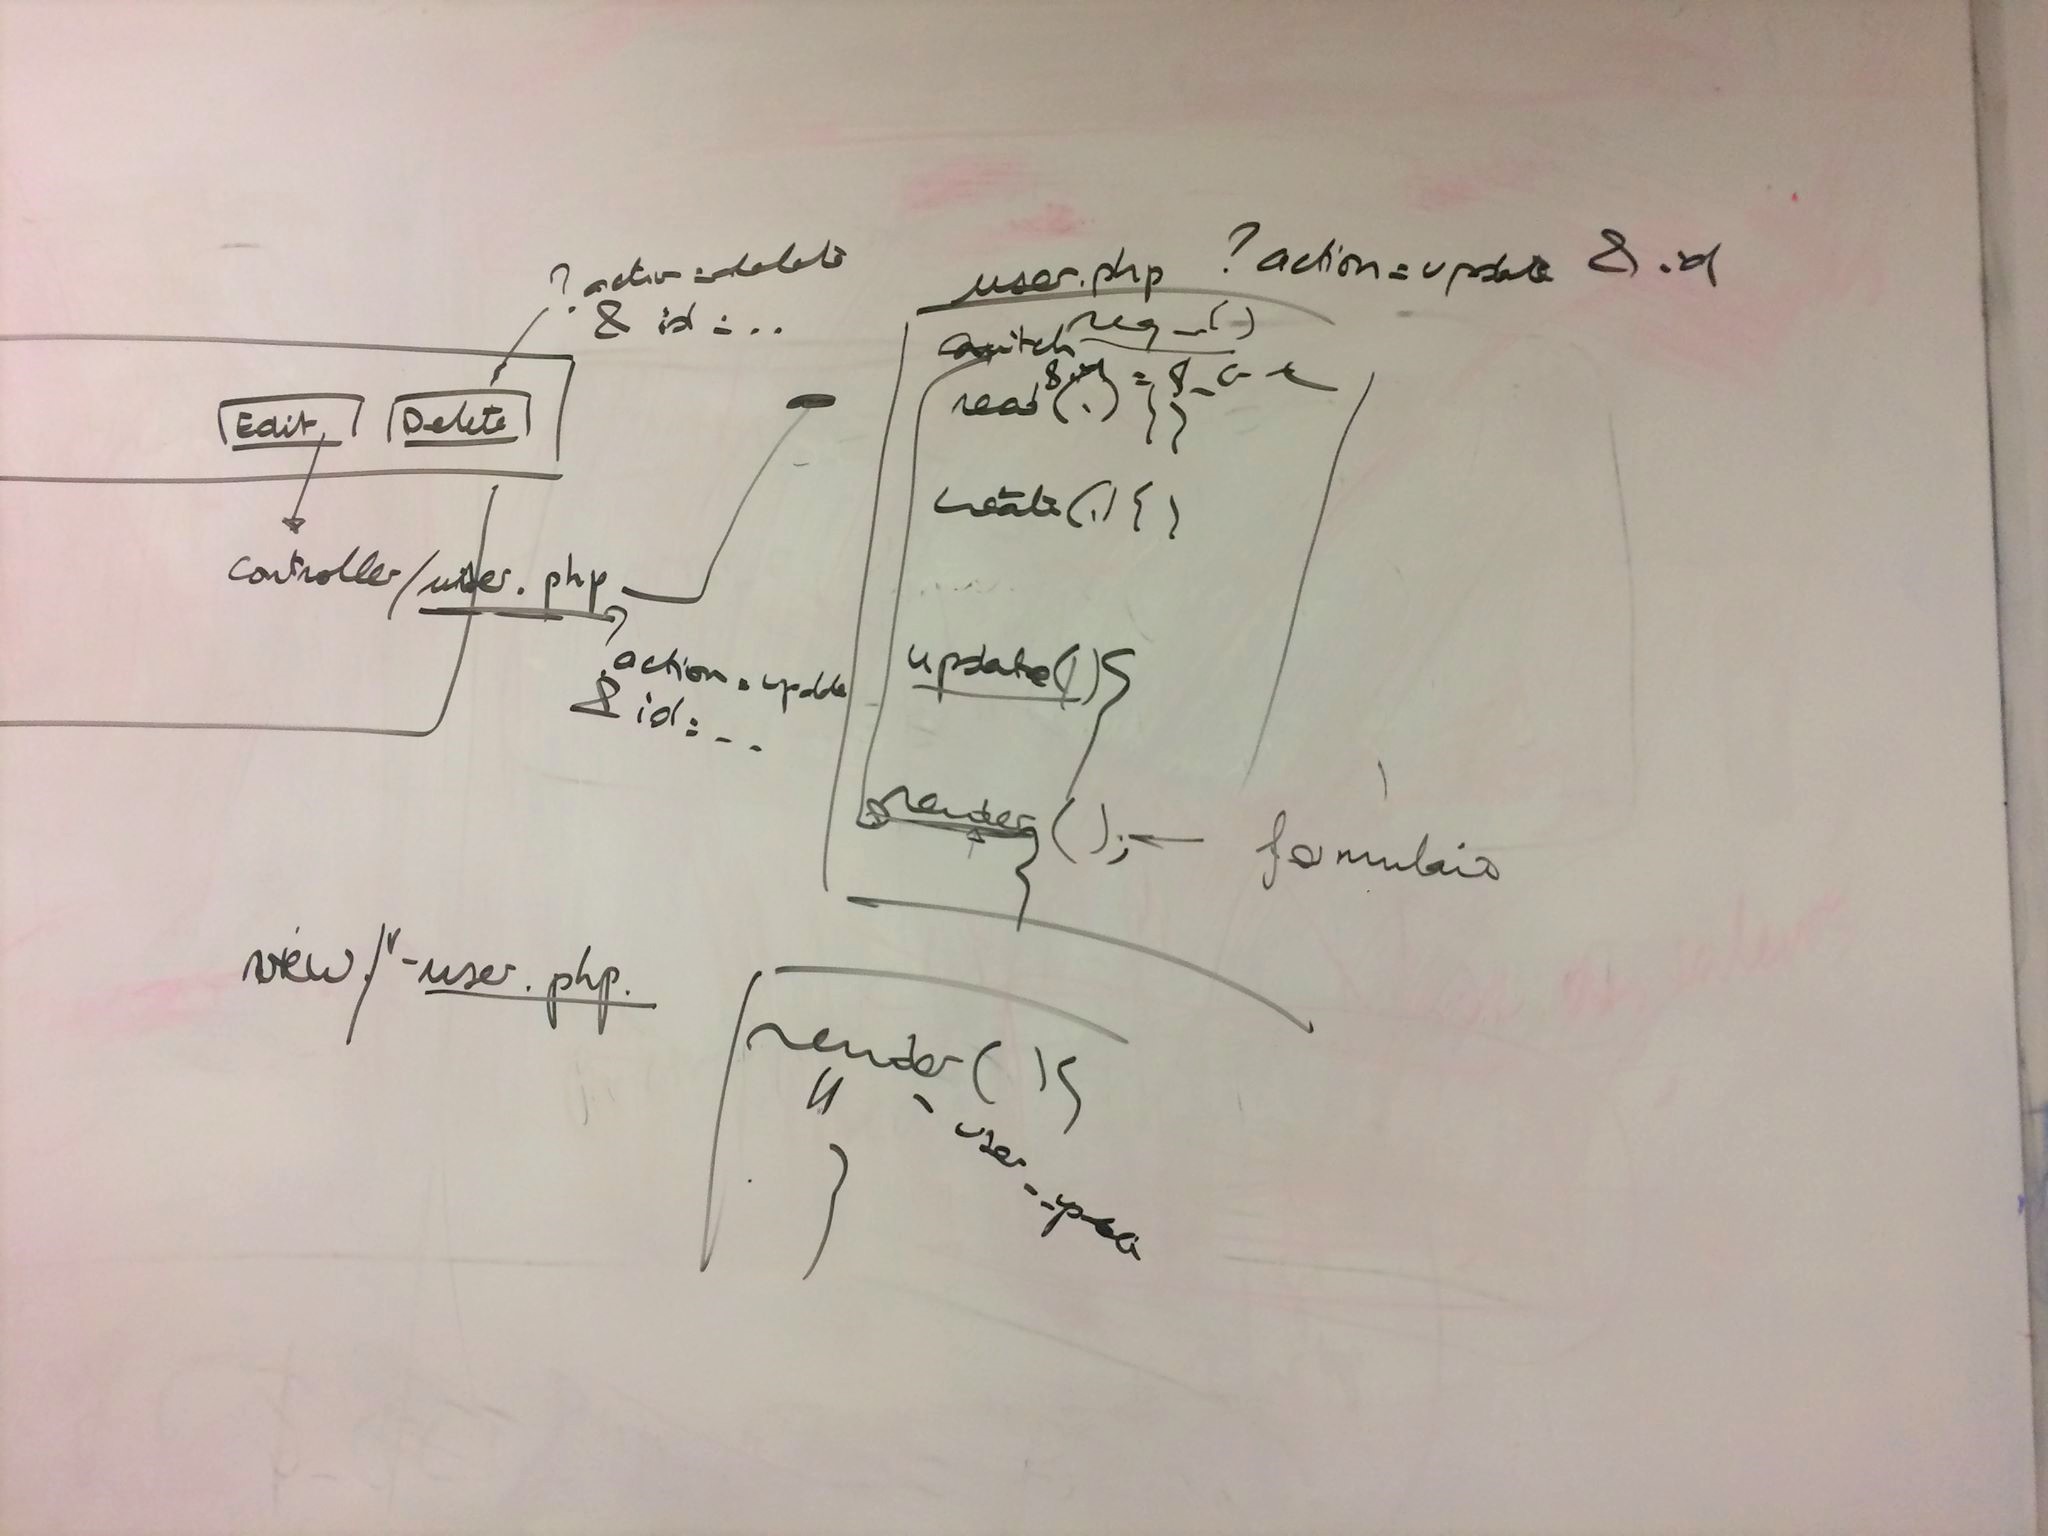 ? action = delete
& id = ..
Edit
Delete
controller/user.php
? action = update
& id = --
user.php ? action = update & id
switch req_()
read(.) {}
create(.) { }
update() {
render();
formulaio
}
view/v-user.php.
render() {
user
}